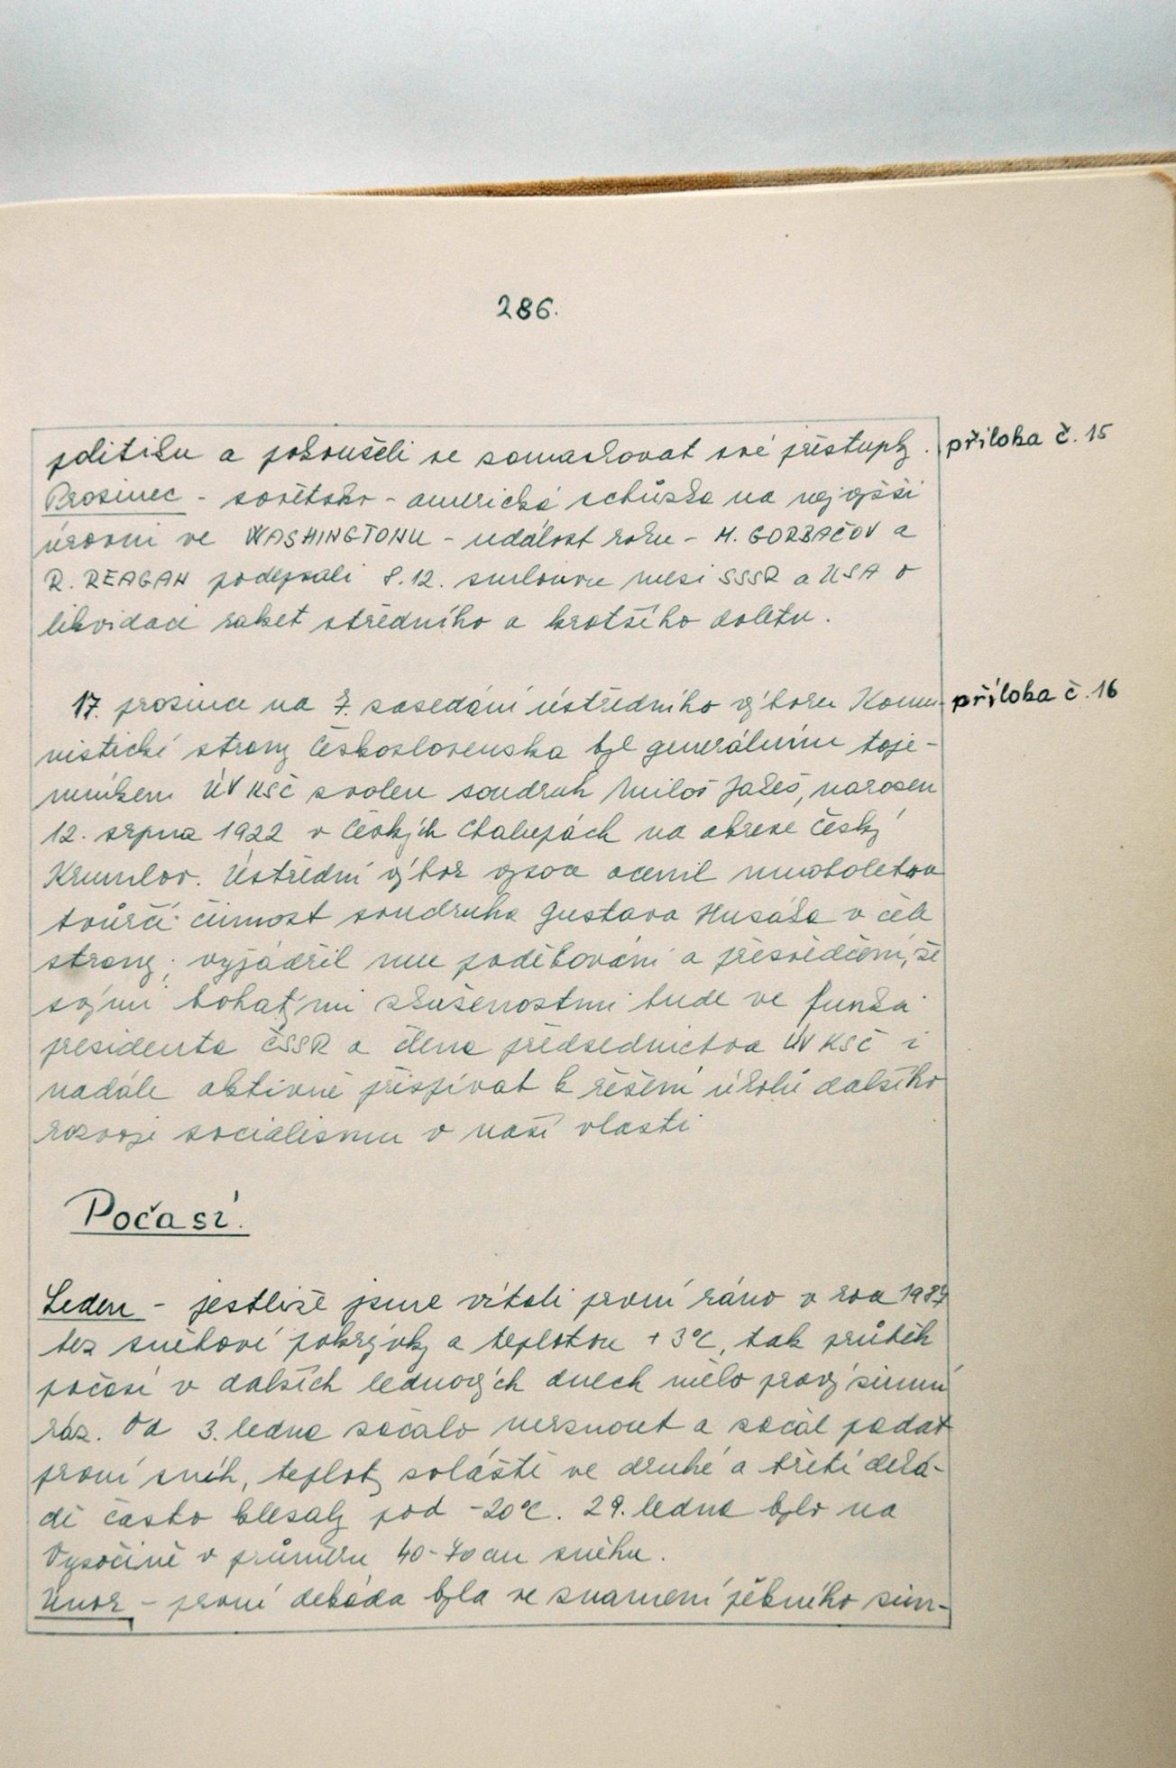 286.
politiku a pokoušeli se zamaskovat své přístupy.
příloha č. 15
Prosinec - sovětsko - americká schůzka na nejvyšší
úrovni ve WASHINGTONU - událost roku - M. GORBAČOV a
R. REAGAN podepsali 8.12. smlouvu mezi SSSR a USA o
likvidaci raket středního a kratšího doletu.
17. prosince na 7. zasedání ústředního výboru Komu-
příloha č. 16
nistické strany Československa byl generálním taje-
mníkem ÚV KSČ zvolen soudruh Miloš Jakeš, narozen
12. srpna 1922 v Českých Chalupách na okrese Český
Krumlov. Ústřední výbor vysoce ocenil mnoholetou
tvůrčí činnost soudruha Gustava Husáka v čele
strany; vyjádřil mu poděkování a přesvědčení, že
svými bohatými zkušenostmi bude ve funkci
presidenta ČSSR a člena předsednictva ÚV KSČ i
nadále aktivně přispívat k řešení úkolů dalšího
rozvoje socialismu v naší vlasti
Počasí.
Leden - jestliže jsme vítali první ráno v roce 1987
bez sněhové pokrývky a teplotou +3°C, tak průběh
počasí v dalších lednových dnech mělo pravý zimní
ráz. Od 3. ledna začalo mrznout a začal padat
první sníh, teploty zvláště ve druhé a třetí deká-
dě často klesaly pod -20°C. 29. ledna bylo na
Vysočině v průměru 40-70 cm sněhu.
Únor - první dekáda byla ve znamení pěkného zim-